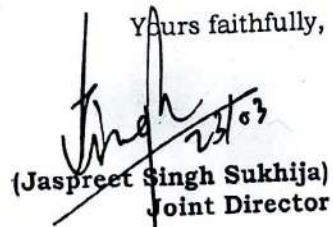 Yours faithfully,
Singh
23/03
(Jaspreet Singh Sukhija)
Joint Director